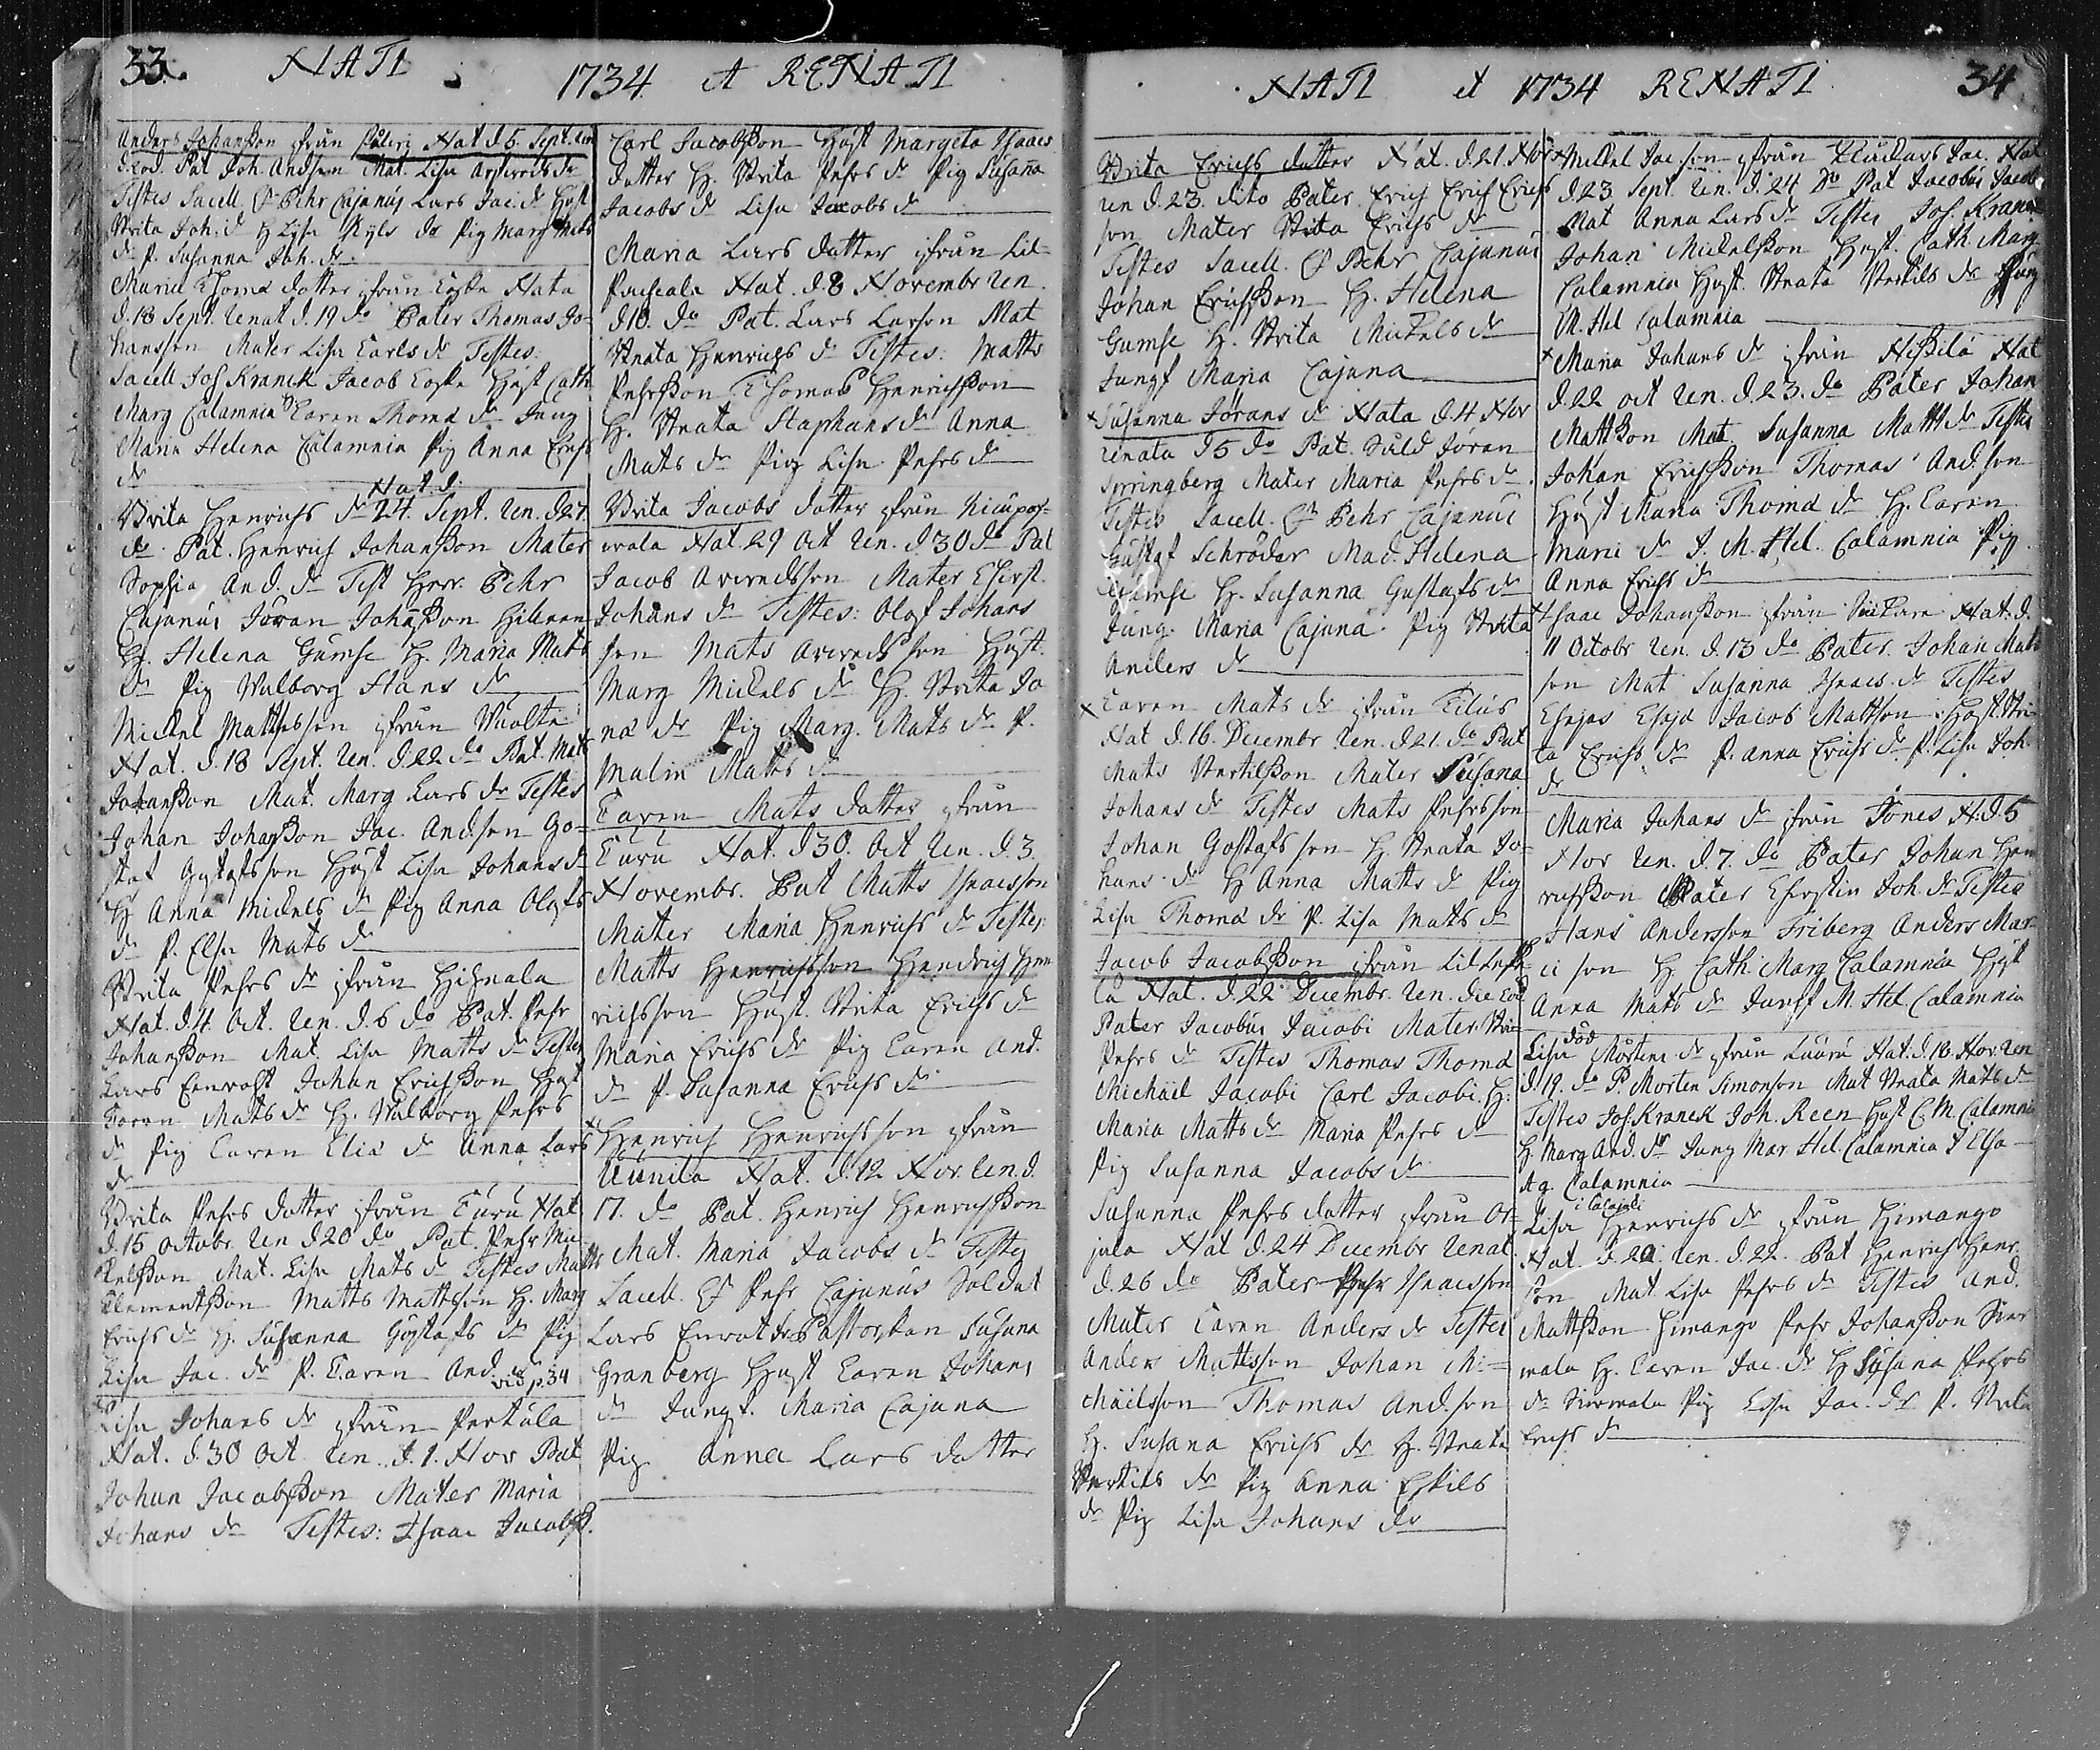 33. NATI 1734 et RENATI
Anders Johansson från Nat d. 5. Sept. ren
d. eod. Pat Joh. Andsson Mat. Lisa dr
Testes Sacell. Pehr Cajanus Lars Jac. dr Hust
Brita Joh. dr H Lisa Kyls dr Pig Marg Mats
dr P. Susanna Joh. dr
Maria Thomæ dotter från Koske Nata
d. 18 Sept. renat d. 19 do Pater Thomas Jo-
hansson Mater Lisa Carls dr Testes:
Sacell Jos Kranck Jacob Koske Hust Cath
Marg Calamnia H Caren Thomæ dr Jung
Maria Helena Calamnia Pig Anna Erichs
dr
Brita Henrichs dr Nat d. 24. Sept. ren. d. 27.
do Pat. Henrich Johansson Mater
Sophia And. dr Test Herr Pehr
Cajanus Jöran Johansson
H. Helena Gumse H. Maria Mats
dr Pig Walborg Hans dr
Mickel Mattsson från
Nat. d. 18 Sept. ren. d. 22 do Pat. Mats
Johansson Mat. Marg Lars dr Testes
Johan Johansson Jac. Andsson Go-
staf Gostafsson Hust Lisa Johans dr
H Anna Mickels dr Pig Anna Olofs
dr P. Elsa Mats dr
Brita Pehrs dr från Hihnala
Nat. d. 4. Oct. ren. d. 6 do Pat. Pehr
Johansson Mat. Lisa Matts dr Testes
Lars Johan Erichsson Hust
Caren Mats dr H. Walborg Pehrs
dr Pig Caren Eliæ dr Anna Lars
dr
Brita Pehrs dotter från Curu Nat
d. 15 Octobr ren d 20 do Pat. Pehr Mic-
kelsson Mat. Lisa Mats dr Testes Matts
Clementsson Matts Mattsson H. Marg
Erichs dr H. Susanna Gostafs dr Pig
Lisa Jac. dr P. Caren And. vid p. 34
Lisa Johans dr från Perkula
Nat. d. 30 Oct. ren. d. 1. Nov Pat
Johan Jacobsson Mater Maria
Johans dr Testes: Isaac Jacobss.
Carl Jacobsson Hust Margeta Isaacs
dotter H. Brita Pehrs dr Pig Susanna
Jacobs dr Lisa Jacobs dr
Maria Lars dotter från Lil-
Nat. d. 8 Novembr ren.
d 10. do Pat. Lars Larson Mat
Beata Henrichs dr Testes: Matts
Pehrsson Thomas Henrichsson
H. Beata Staphans dr Anna
Mats dr Pig Lisa Pehrs dr
Brita Jacobs dotter från
Nat. 29 Oct ren. d. 30 do Pat
Jacob Mater
Johans dr Testes: Olof Johans
son Mats Hust.
Marg Mickels dr H. Brita Jo
næ dr Pig Marg. Mats dr P.
Malin Matts dr
Caren Mats dotter från
Curu Nat. d 30. Oct ren. d. 3.
Novembr. Pat Matts Isaacsson
Mater Maria Henrichs dr Testes:
Matts Henrichsson Hendrich Hen
richsson Hust. Brita Erichs dr
Maria Erichs dr Pig Caren And.
dr P. Susanna Erichs dr
x Henrich Henrichsson från
Nat. d. 12 Nov. ren. d.
17. do Pat. Henrich Henrichsson
Mat. Maria Jacobs dr Testes
Sacell. Pehr Cajanus Soldat
Lars Pastorskan Susana
Granberg Hust Caren Johans
dr Jungf. Maria Cajana
Pig Anna Lars dotter
NATI et 1734 RENATI 34
Brita Erichs dotter Nat. d. 21. Nov
ren d. 23. dito Pater. Erich Erich Erichs
son Mater Brita Erichs dr
Testes Sacell. Pehr Cajanus
Johan Erichsson H. Helena
Gumse H. Brita Mickels dr
Jungf Maria Cajana
x Susanna Jörans dr Nata d. 4 Nov
renata d 5 do Pat. Sold Jöran
Springberg Mater Maria Pehrs dr
Testes Sacell. Pehr Cajanus
Gustaf Schröder Mad. Helena
Gumse H. Susanna Gustafs dr
Jung. Maria Cajana Pig Brita
Anders dr
x Caren Mats dr från
Nat d. 16. Decembr ren. d 21. do Pat
Mats Bertilsson Mater Susana
Johans dr Testes Mats Pehrsson
Johan Gostafsson H. Beata Jo-
hans dr H Anna Matts dr Pig
Lisa Thomæ dr P. Lisa Mats dr
Jacob Jacobsson från Lil
Nat. d. 22 Decembr. ren. die eod
Pater Jacobus Jacobi Mater Bri-
Pehrs dr Testes Thomas Thomæ
Michäel Jacobi Carl Jacobi. H:
Maria Matts dr Maria Pehrs dr
Pig Susanna Jacobs dr
Susanna Pehrs dotter från Ot-
jala Nat d. 24 Decembr renat.
d. 26 do Pater Pehr Isaacsson
Mater Caren Anders dr Testes
Anders Mattsson Johan Mi-
chäelsson Thomas Andsson
H. Susana Erichs dr H. Beata
Bertils dr Pig Anna Eskils
dr Pig Lisa Johans dr
x Mickel Jacsson från Jac. Nat
d. 23 Sept. ren. d. 24 do Pat Jacobus Jacob
Mat Anna Lars dr Testes Jos. Kranck
Johan Mickelsson Hust. Cath. Marg
Calamnia Hust. Beata Bertils dr Jung
M. Hel Calamnia
x Maria Johans dr från Nat
d. 22 oct ren. d. 23. do Pater Johan
Mattsson Mat. Susanna Matts dr Testes
Johan Erichsson Thomas Andsson
Hust Maria Thomæ dr H. Caren
Marci dr J. M. Hel. Calamnia Pig
Anna Erichs dr
x Isaac Johansson från Nat. d.
11 Octobr ren. d. 13 do Pater. Johan Mats
son Mat Susanna Isaacs dr Testes
Jacob Mattson Hust. Bri-
ta Erichs dr P. Anna Erichs dr P. Lisa Joh.
dr
Maria Johans dr från N. d. 5
Nov ren. d. 7. do Pater Johan Hen
richsson Mater Joh. dr Testes
Hans Andersson Friberg Anders Mar-
ci son H. Cath Marg Calamnia Hust
Anna Mats dr Jungf M. Hel. Calamnia
död
Lisa Mårtens dr från Nat. d. 16. Nov. ren
d. 19. do P. Morten Simonson Mat Beata Mats dr
Testes Jos. Kranck Joh. Reen Hust C. M. Calamnia
H. Marg And. dr Jung Mar. Hel. Calamnia P Elsa
Ag. Calamnia
Lisa Henrichs dr från Himango
Nat. d. 20. ren. d. 22. Pat Henrich Henr.
son Mat Lisa Pehrs dr Testes And.
Mattsson Himango Pehr Johansson
H. Caren Jac. dr H Susana Pehrs
dr Pig Lisa Jac. dr P. Brita
Erichs dr